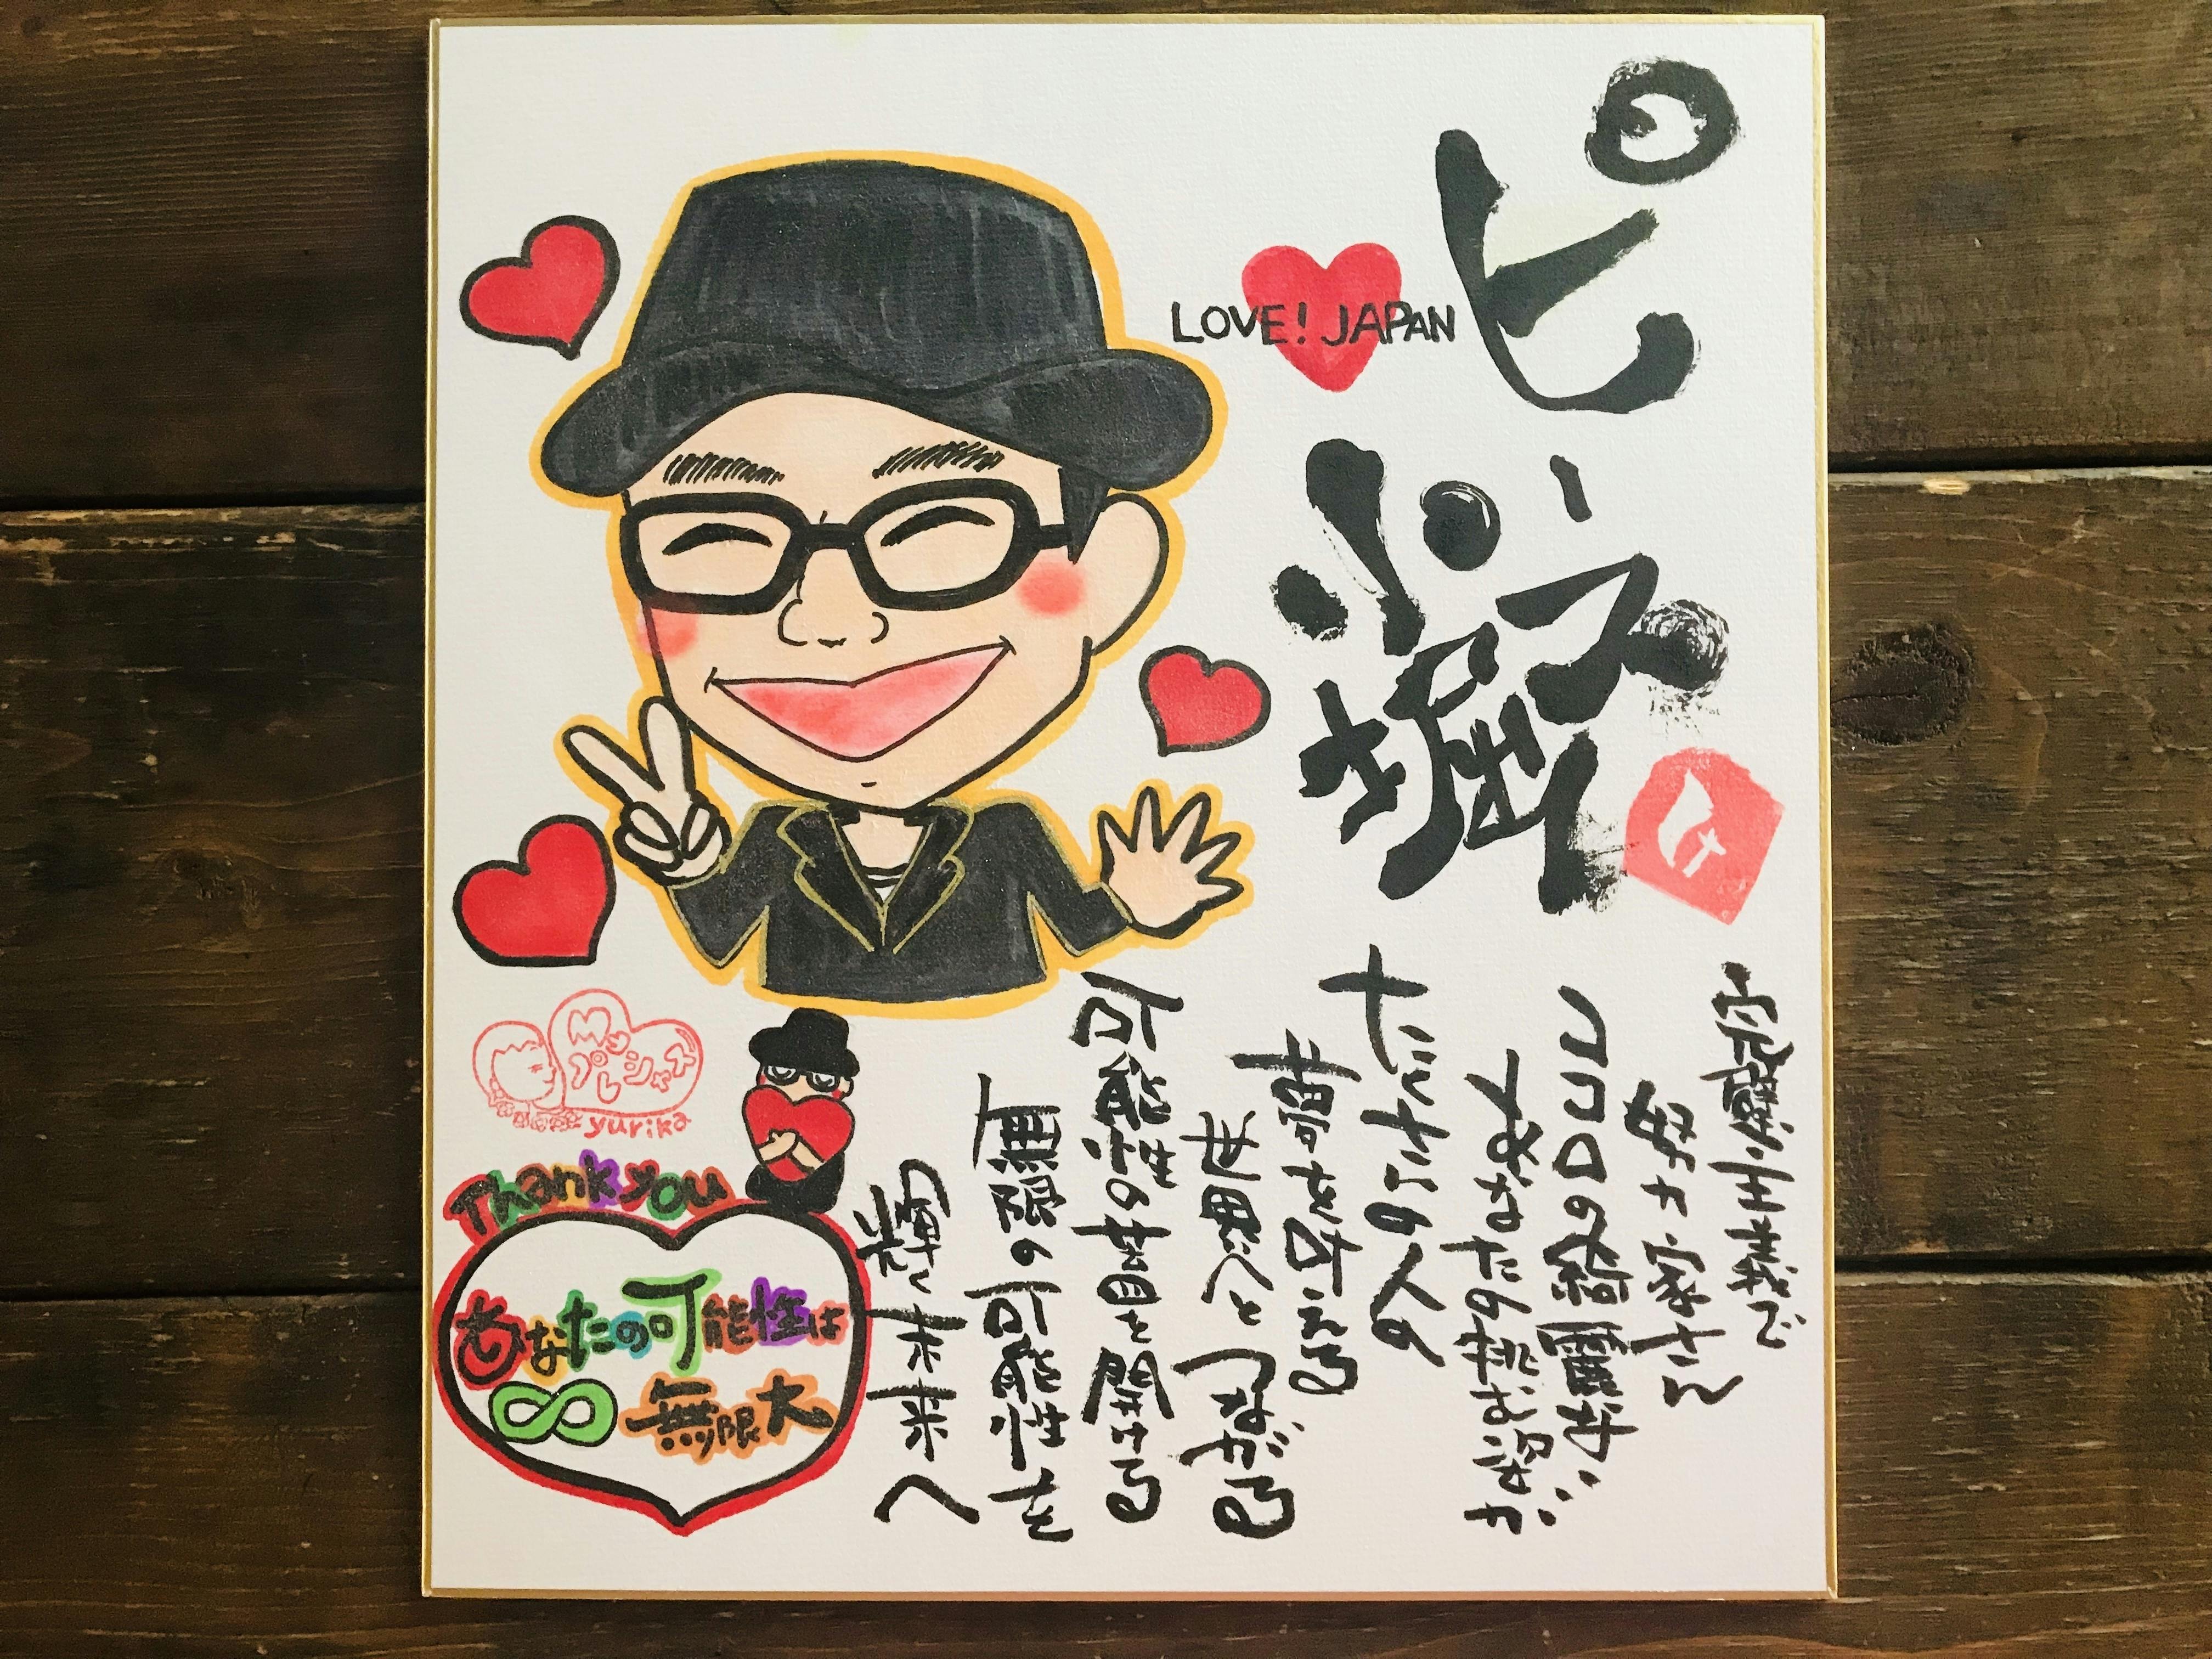 ピース
小堀
LOVE! JAPAN
完璧主義で
努力家さん
ココロの綺麗な
あなたの挑む姿が
たくさんの人の
夢を叶える
世界へとつながる
可能性の蓋を開ける
無限の可能性を
輝く未来へ
Myプレシャス
yurika
Thank you
あなたの可能性は
∞ 無限大